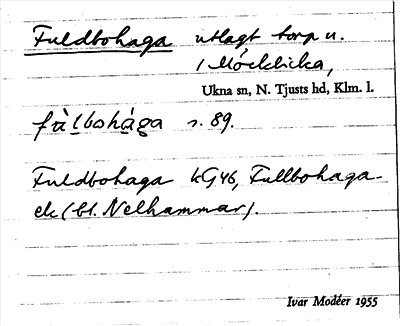 Fuldbohaga utlagt torp u.
/ Mörckhicka,
Ukna sn, N. Tjusts hd, Klm. l.
fàlbohága s. 89.
Fuldbohaga kG46, Fullbohaga-
ek (bl. Nelhammar).
Ivar Modéer 1955